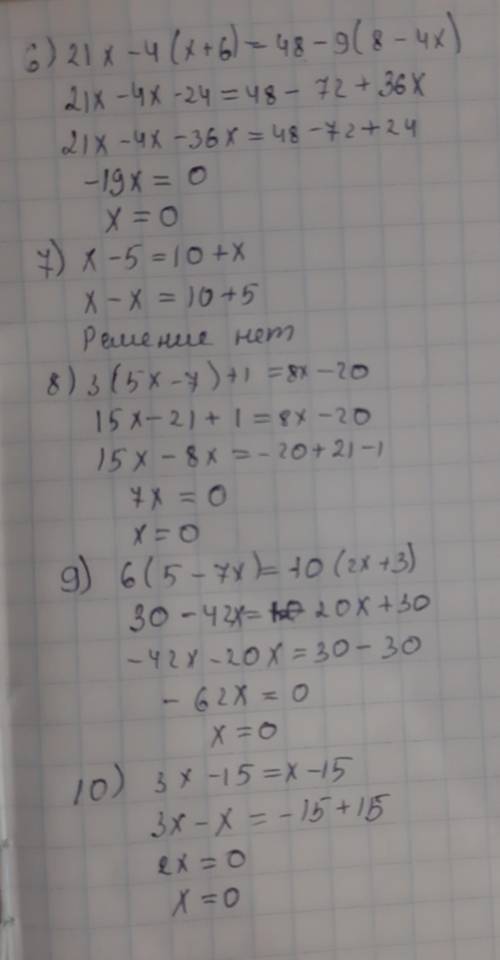 6) 21x - 4(x+6) = 48 - 9(8 - 4x)
21x - 4x - 24 = 48 - 72 + 36x
21x - 4x - 36x = 48 - 72 + 24
-19x = 0
x = 0
7) x - 5 = 10 + x
x - x = 10 + 5
Решение нет
8) 3(5x - 7) + 1 = 8x - 20
15x - 21 + 1 = 8x - 20
15x - 8x = -20 + 21 - 1
7x = 0
x = 0
9) 6(5 - 7x) = 10(2x + 3)
30 - 42x = 20x + 30
-42x - 20x = 30 - 30
-62x = 0
x = 0
10) 3x - 15 = x - 15
3x - x = -15 + 15
2x = 0
x = 0